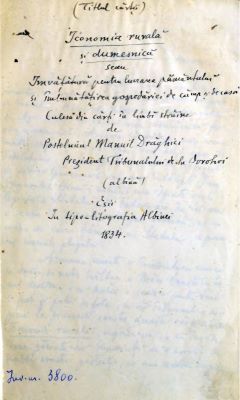 (Titlul cărții)
Iconomia rurală
și dumesnică
seau
Învățătură pentru lucrarea pământului
și îmbunătățirea gospodăriei de câmp și de casă
Culeasă din cărți în limbi străine
de
Postelnicul Manuil Drăghici
Prezident Tribunalului de la Dorohoi
(albină)
Eșii
În tipo-litografia Albinei
1834.
Inv. nr. 3800.